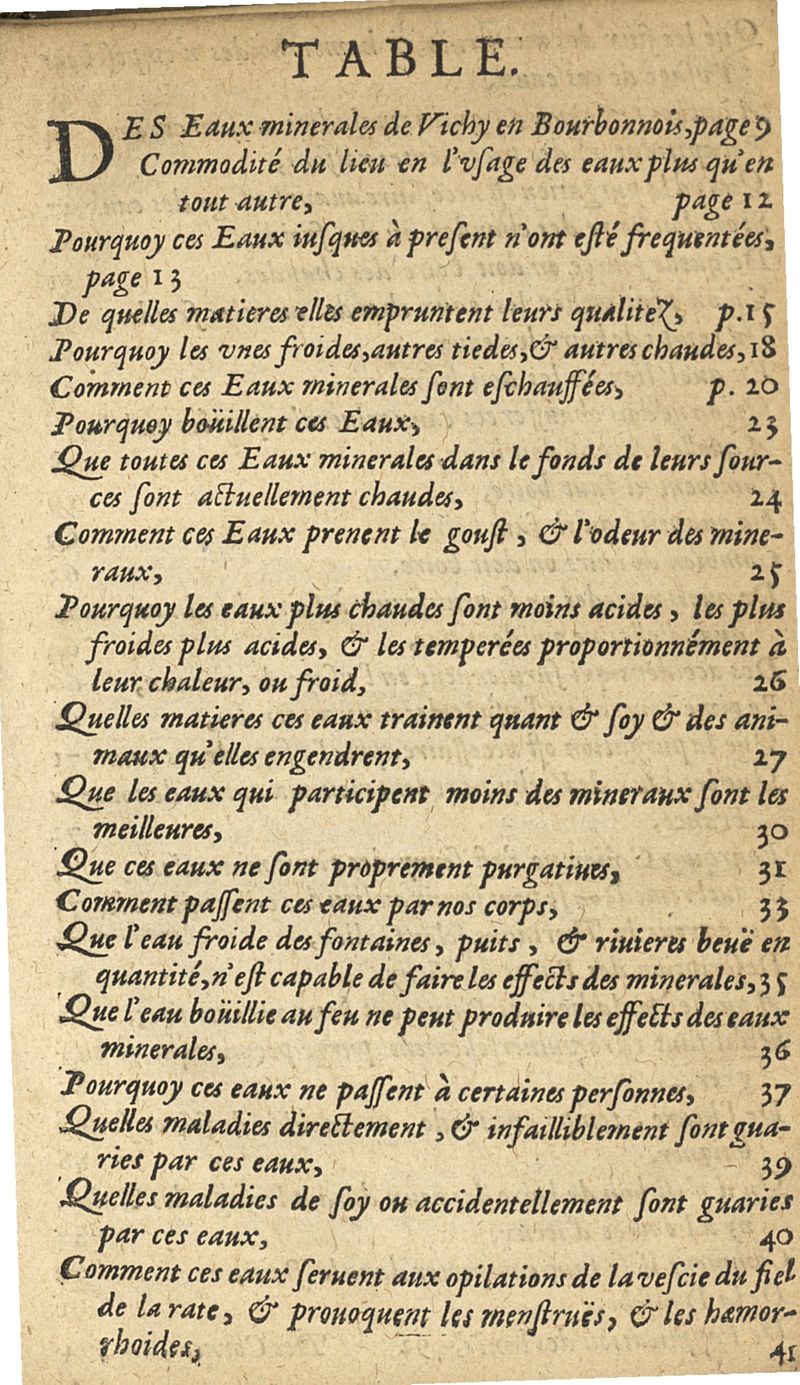 TABLE.
DES Eaux minerales de Vichy en Bourbonnois, page 9
Commodité du lieu en l'vsage des eaux plus qu'en
tout autre, page 12
Pourquoy ces Eaux iusques à present n'ont esté frequentées,
page 13
De quelles matieres elles empruntent leurs qualitez, p.15
Pourquoy les vnes froides, autres tiedes, & autres chaudes, 18
Comment ces Eaux minerales sont eschauffées, p. 20
Pourquoy boüillent ces Eaux, 23
Que toutes ces Eaux minerales dans le fonds de leurs sour-
ces sont actuellement chaudes, 24
Comment ces Eaux prenent le goust, & l'odeur des mine-
raux, 25
Pourquoy les eaux plus chaudes sont moins acides, les plus
froides plus acides, & les temperées proportionnément à
leur chaleur, ou froid, 26
Quelles matieres ces eaux trainent quant & soy & des ani-
maux qu'elles engendrent, 27
Que les eaux qui participent moins des mineraux sont les
meilleures, 30
Que ces eaux ne sont proprement purgatiues, 31
Comment passent ces eaux par nos corps, 33
Que l'eau froide des fontaines, puits, & riuieres beuë en
quantité, n'est capable de faire les effects des minerales, 35
Que l'eau boüillie au feu ne peut produire les effects des eaux
minerales, 36
Pourquoy ces eaux ne passent à certaines personnes, 37
Quelles maladies directement, & infailliblement sont gua-
ries par ces eaux, 39
Quelles maladies de soy ou accidentellement sont guaries
par ces eaux, 40
Comment ces eaux seruent aux opilations de la vescie du fiel
de la rate, & prouoquent les menstruës, & les hæmor-
rhoides, 41